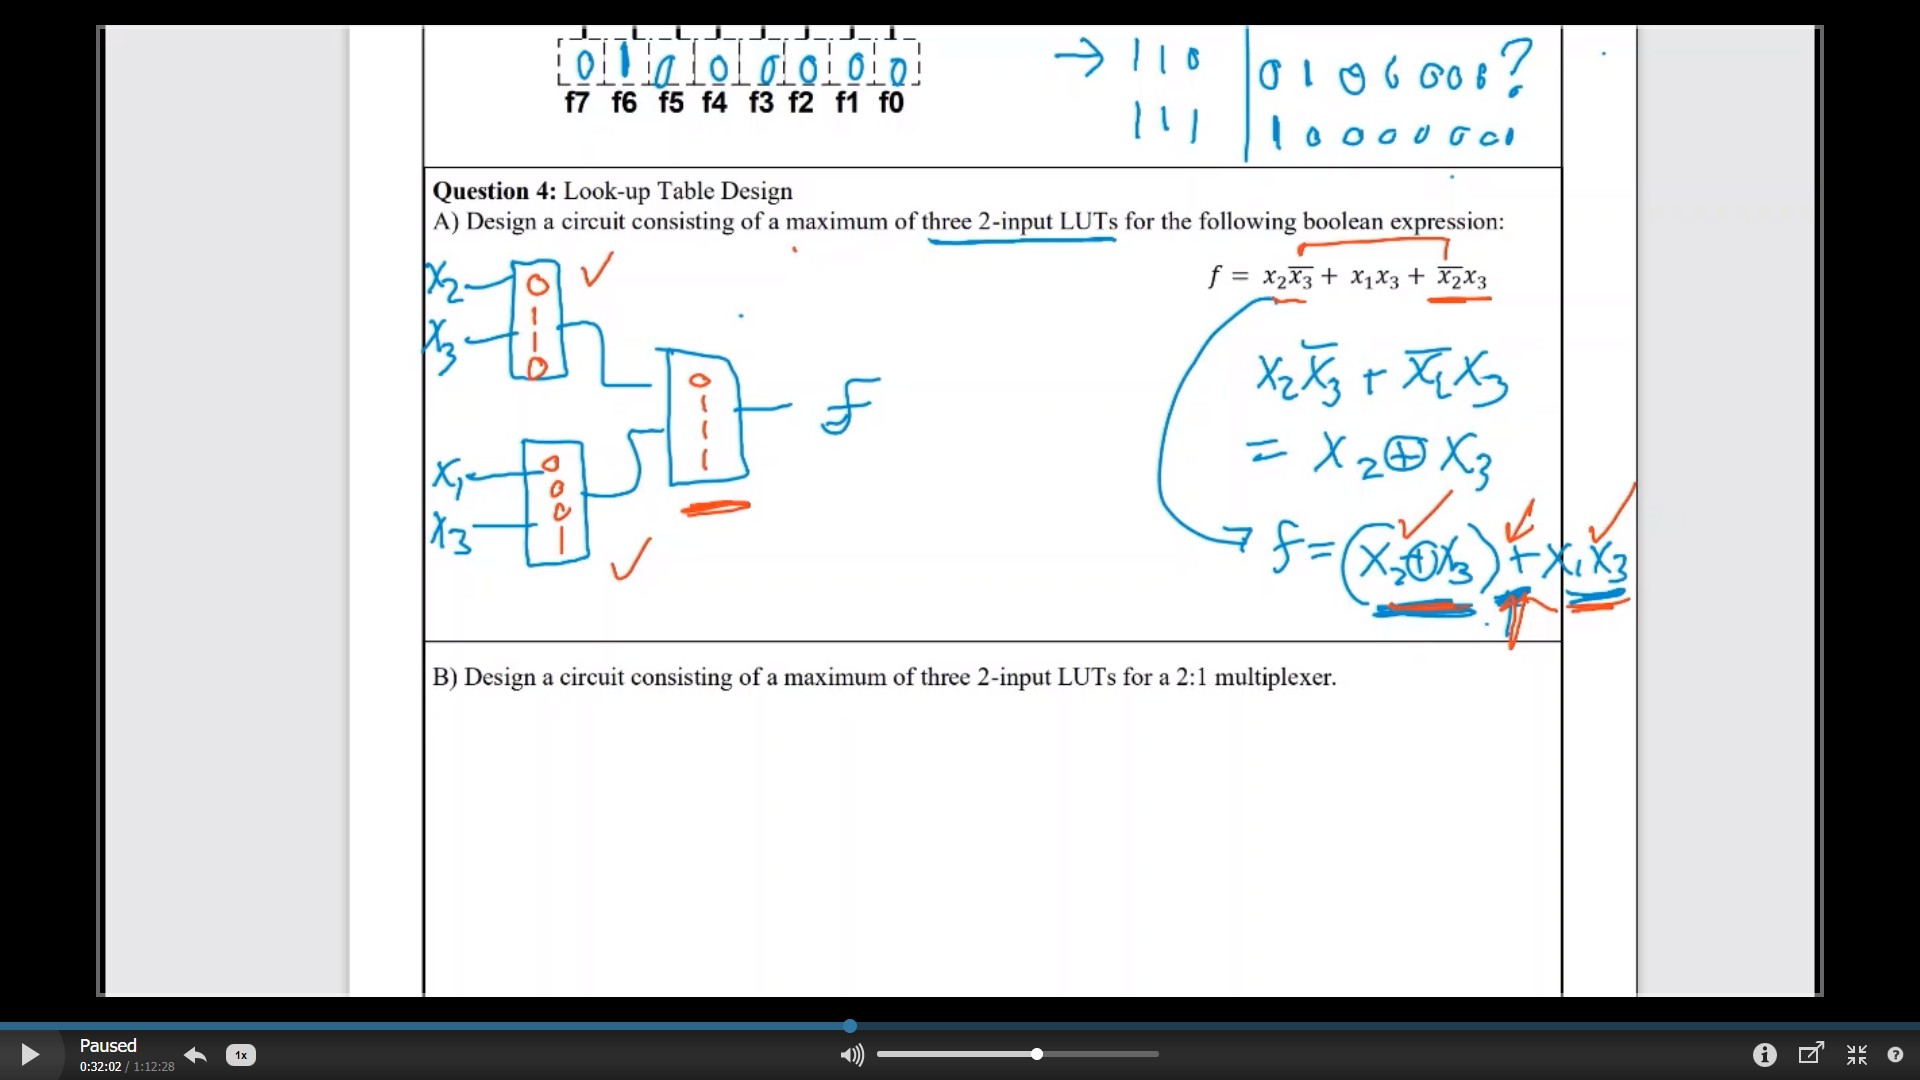 0 1 0 0 0 0 0 0
f7 f6 f5 f4 f3 f2 f1 f0
→ 1 1 0 | 0 1 0 0 0 0 0 ?
1 1 1 | 1 0 0 0 0 0 0 0
Question 4: Look-up Table Design
A) Design a circuit consisting of a maximum of three 2-input LUTs for the following boolean expression:
f = x₂x̅₃ + x₁x₃ + x̅₂x₃
x₂
x₃
0
1
1
0
x₁
x₃
0
0
0
1
0
1
1
1
f
x₂x̅₃ + x̅₂x₃
= x₂⊕x₃
f = (x₂⊕x₃) + x₁x₃
B) Design a circuit consisting of a maximum of three 2-input LUTs for a 2:1 multiplexer.
Paused
0:32:02 / 1:12:28
1x